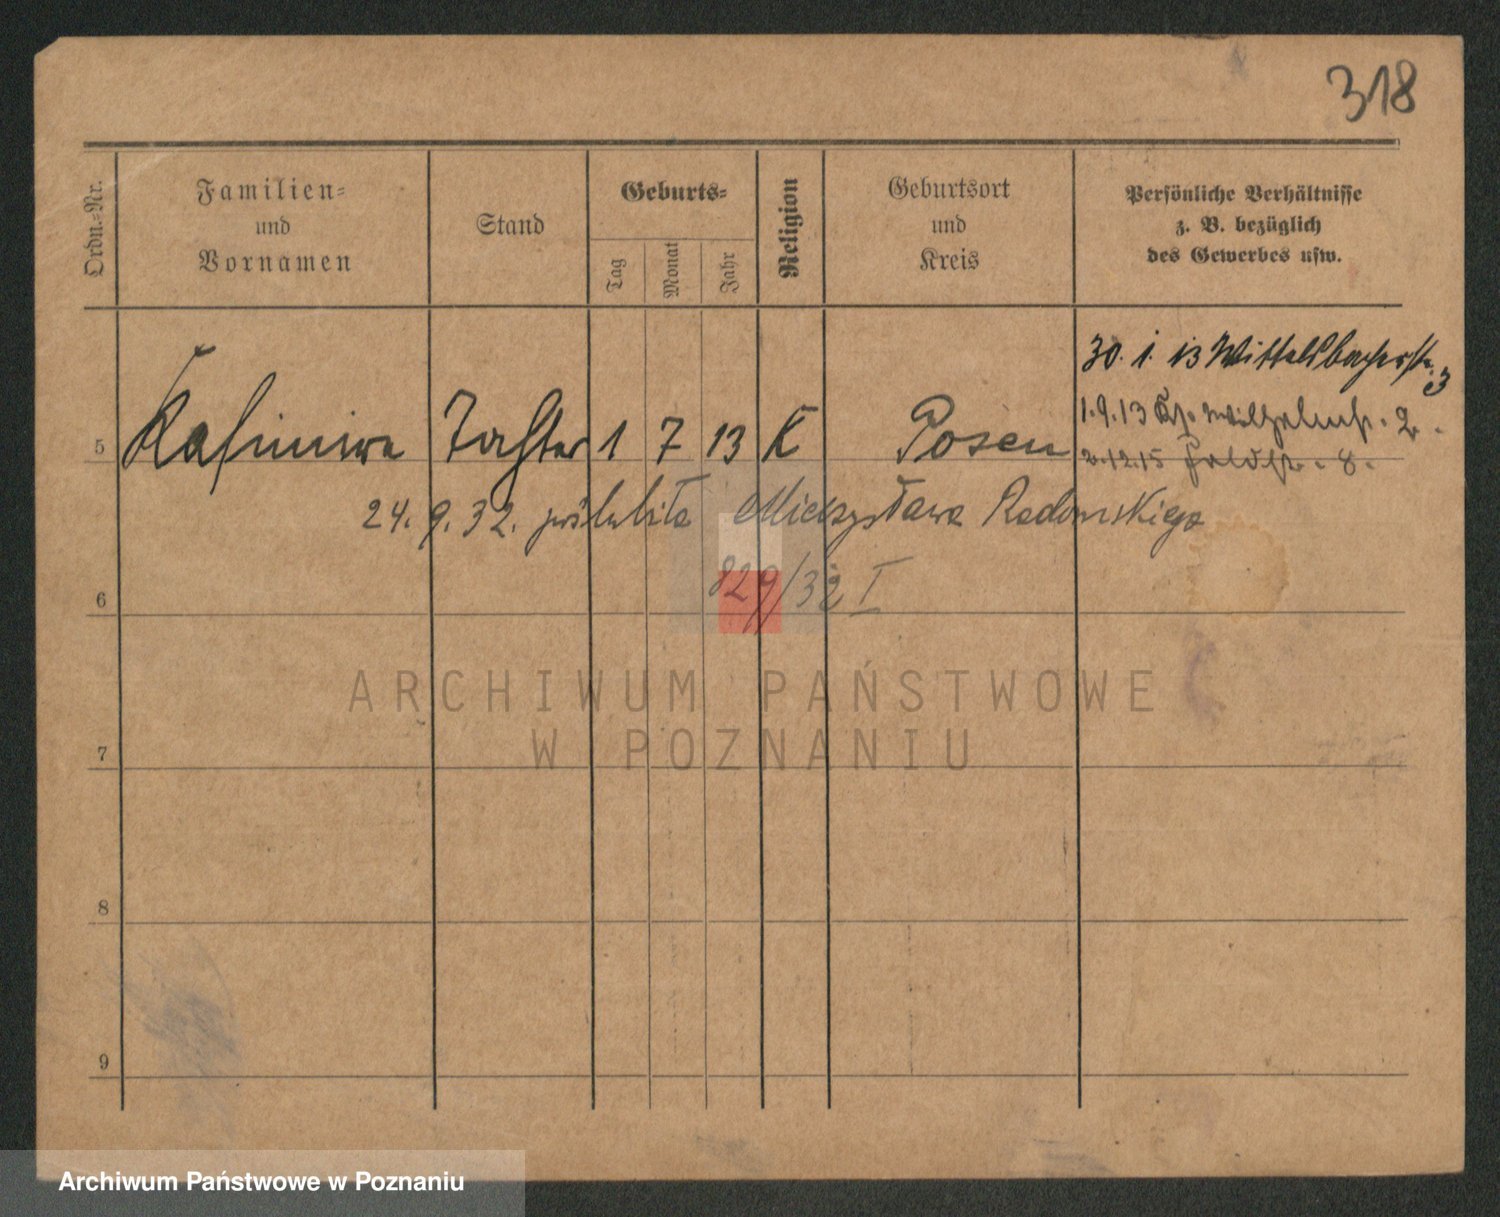 318
Ordn.-Nr.
Familien-
und
Vornamen
Stand
Geburts-
Tag
Monat
Jahr
Religion
Geburtsort
und
Kreis
Persönliche Verhältnisse
z. B. bezüglich
des Gewerbes usw.
30. 1. 13 Wittelsbacherstr. 3
1.9.13 Wilhelmstr. 2.
2.12.15 Feldstr. 8.
5 Kasimira Tochter 1 7 13 K Posen
24. 9. 32. poślubiła Mieczysława Radomskiego
829/32 I
6
7
8
9
ARCHIWUM PAŃSTWOWE
W POZNANIU
Archiwum Państwowe w Poznaniu